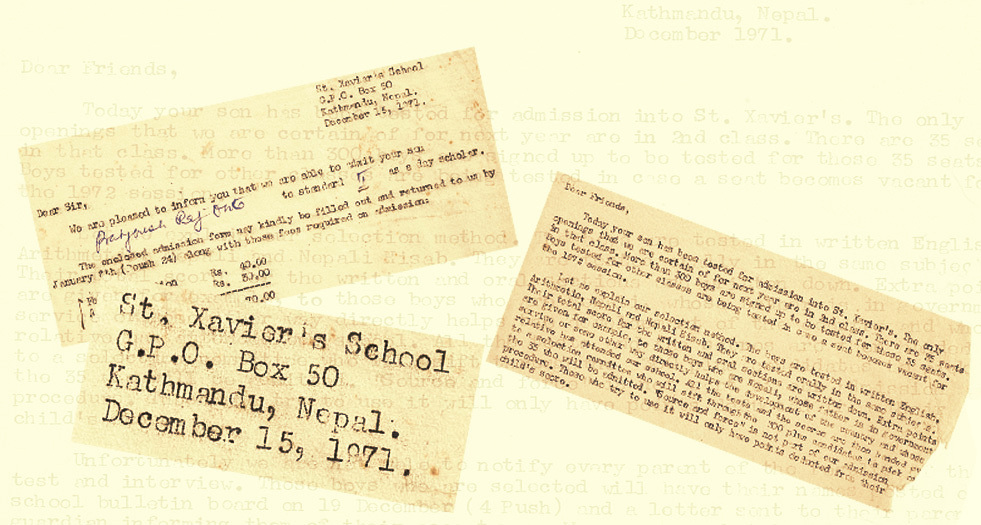 Kathmandu, Nepal.
December 1971.
Dear Friends,
Today your son has been tested for admission into St. Xavier's. The only
openings that we are certain of for next year are in 2nd class. There are 35
in that class. More than 300 boys signed up to be tested for those 35 seats
Boys tested for other tested in case a seat becomes vacant
the 1972 session
St. Xavier's School
G.P.O. Box 50
Kathmandu, Nepal.
December 15, 1971.
Dear Sir,
We are pleased to inform you that we are able to admit your son
to standard as a day scholar.
The enclosed admission form may kindly be filled out and returned to us by
January 8th (Poush 24) along with those fees required on admission:
Rs. 40.00
Rs. 30.00
70.00
St. Xavier's School
G.P.O. Box 50
Kathmandu, Nepal.
December 15, 1971.
Dear Friends,
Today your son has been tested for admission into St. Xavier's. The only
openings that we are certain of for next year are in 2nd class. There are 35
in that class. More than 300 boys are signed up to be tested for those 35 seats.
Boys tested for other classes are being tested in case a seat becomes vacant for
the 1972 session.
Let me explain our selection method. The boys are tested in written English,
Arithmetic, Nepali and Nepali Hisab. They are tested orally in the same subjects.
Their total score for the written and oral sections are written down. Extra points
are given for example, to those boys who are Nepali, whose father is in government
service or some other way directly helps the development of the country and whose
relative has attended our school. All the tests and the scores are then handed over
to a selection committee who will sift through the 300 plus candidates to pick
the 35 who will be admitted. "Source and force" is not part of our admission
procedure. Those who try to use it will only have points deducted from their
child's score.
Unfortunately we are to notify every parent of the
test and interview. Those boys who are selected will have their names
school bulletin board on 19 December (4 Push) and a letter sent to their
guardian informing them of their